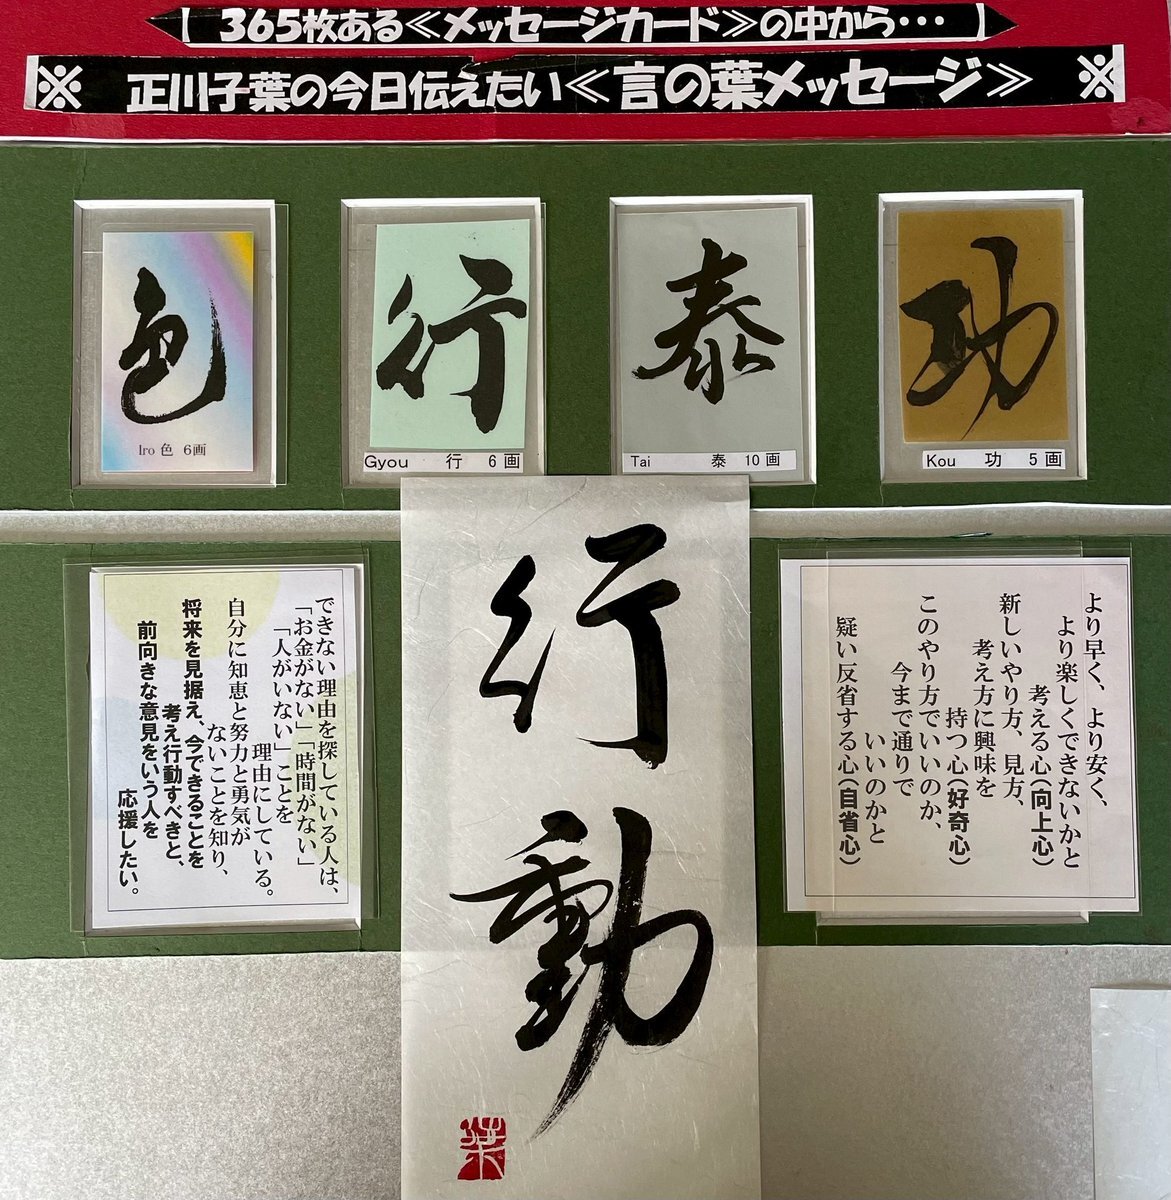 365枚ある≪メッセージカード≫の中から・・・
※ 正川子葉の今日伝えたい≪言の葉メッセージ≫ ※
色
Iro 色 6画
行
Gyou 行 6画
泰
Tai 泰 10画
功
Kou 功 5画
行動
より早く、より安く、
より楽しくできないかと
考える心(向上心)
新しいやり方、見方、
考え方に興味を
持つ心(好奇心)
このやり方でいいのか、
今まで通りで
いいのかと
疑い反省する心(自省心)
できない理由を探している人は、
「お金がない」「時間がない」
「人がいない」ことを
理由にしている。
自分に知恵と努力と勇気が
ないことを知り、
将来を見据え、今できることを
考え行動すべきと、
前向きな意見をいう人を
応援したい。